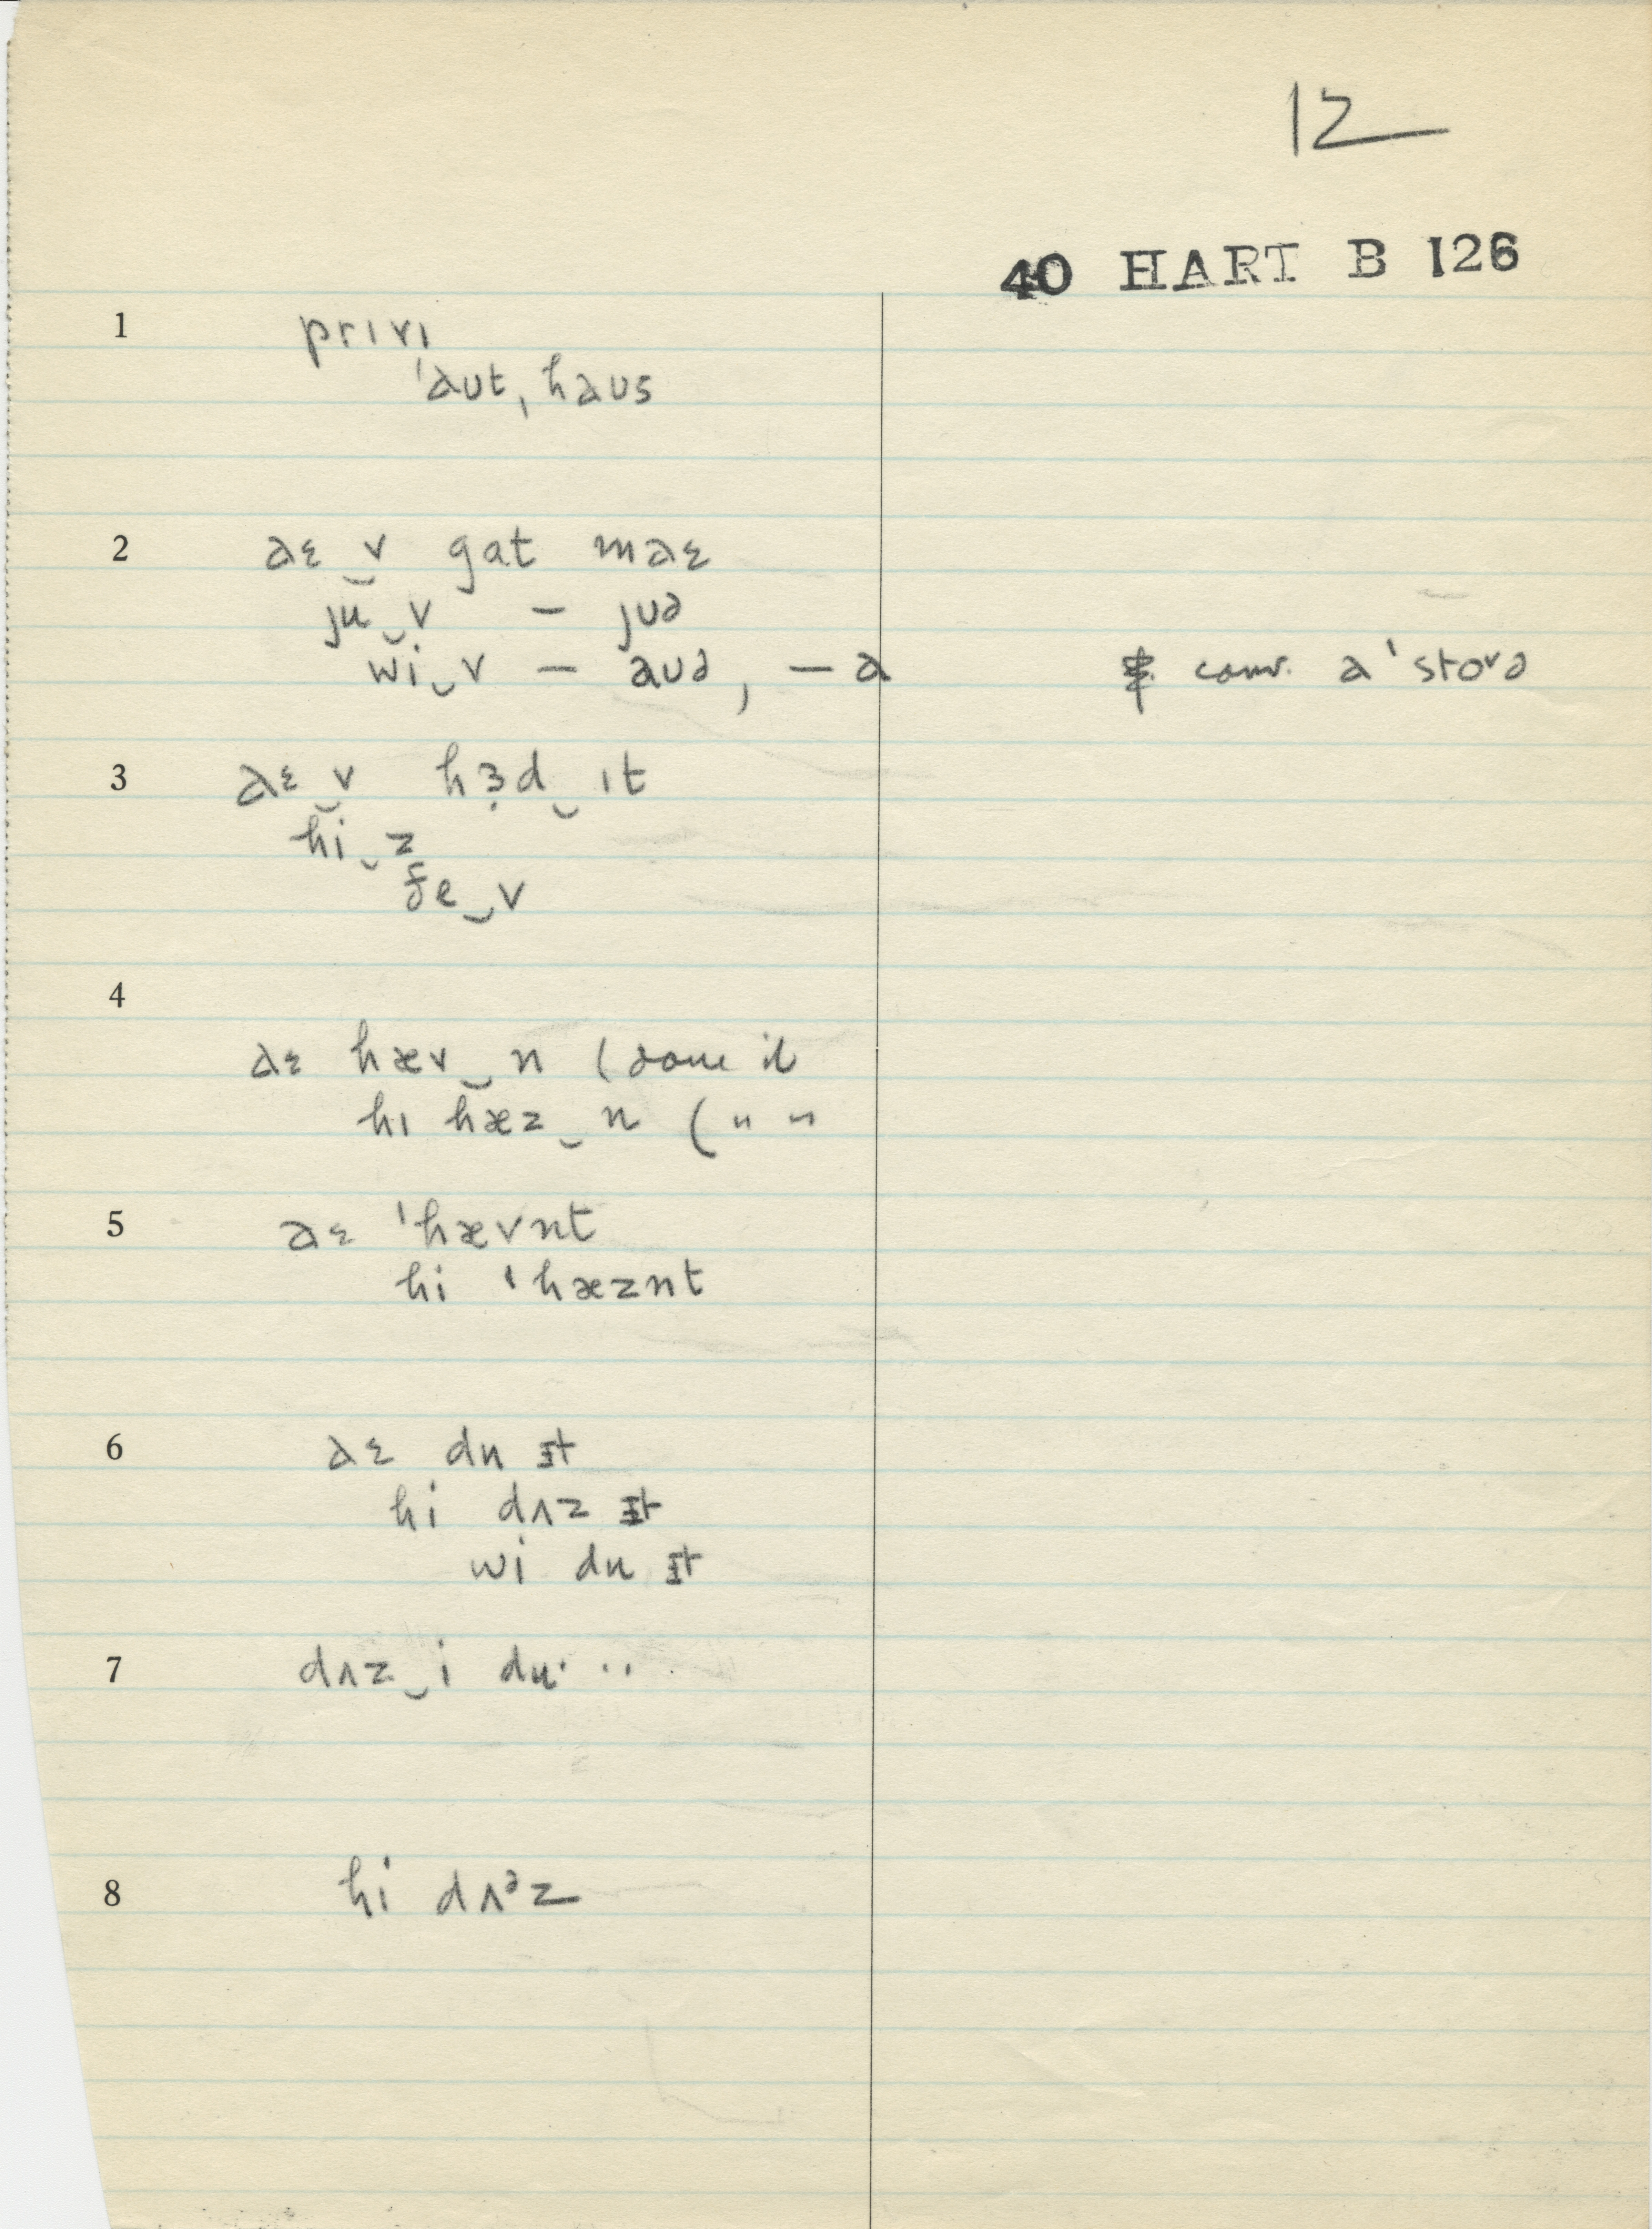 12
40 HART B 126
1 prɪvɪ
ˈaut, haus
2 aɛ‿v gat maɛ
ju‿v – juə
wi‿v – auə, – a
conv. a ˈstovə
3 aɛ‿v hɜ̣d‿ɪt
hi‿z
ðe‿v
4
aɛ hæv‿n (done it
hɪ hæz‿n (" "
5 aɛ ˈhævnt
hi ˈhæznt
6 aɛ du ɪt
hi dʌz ɪt
wi du ɪt
7 dʌz‿i du· ··
8 hi dʌᵊz